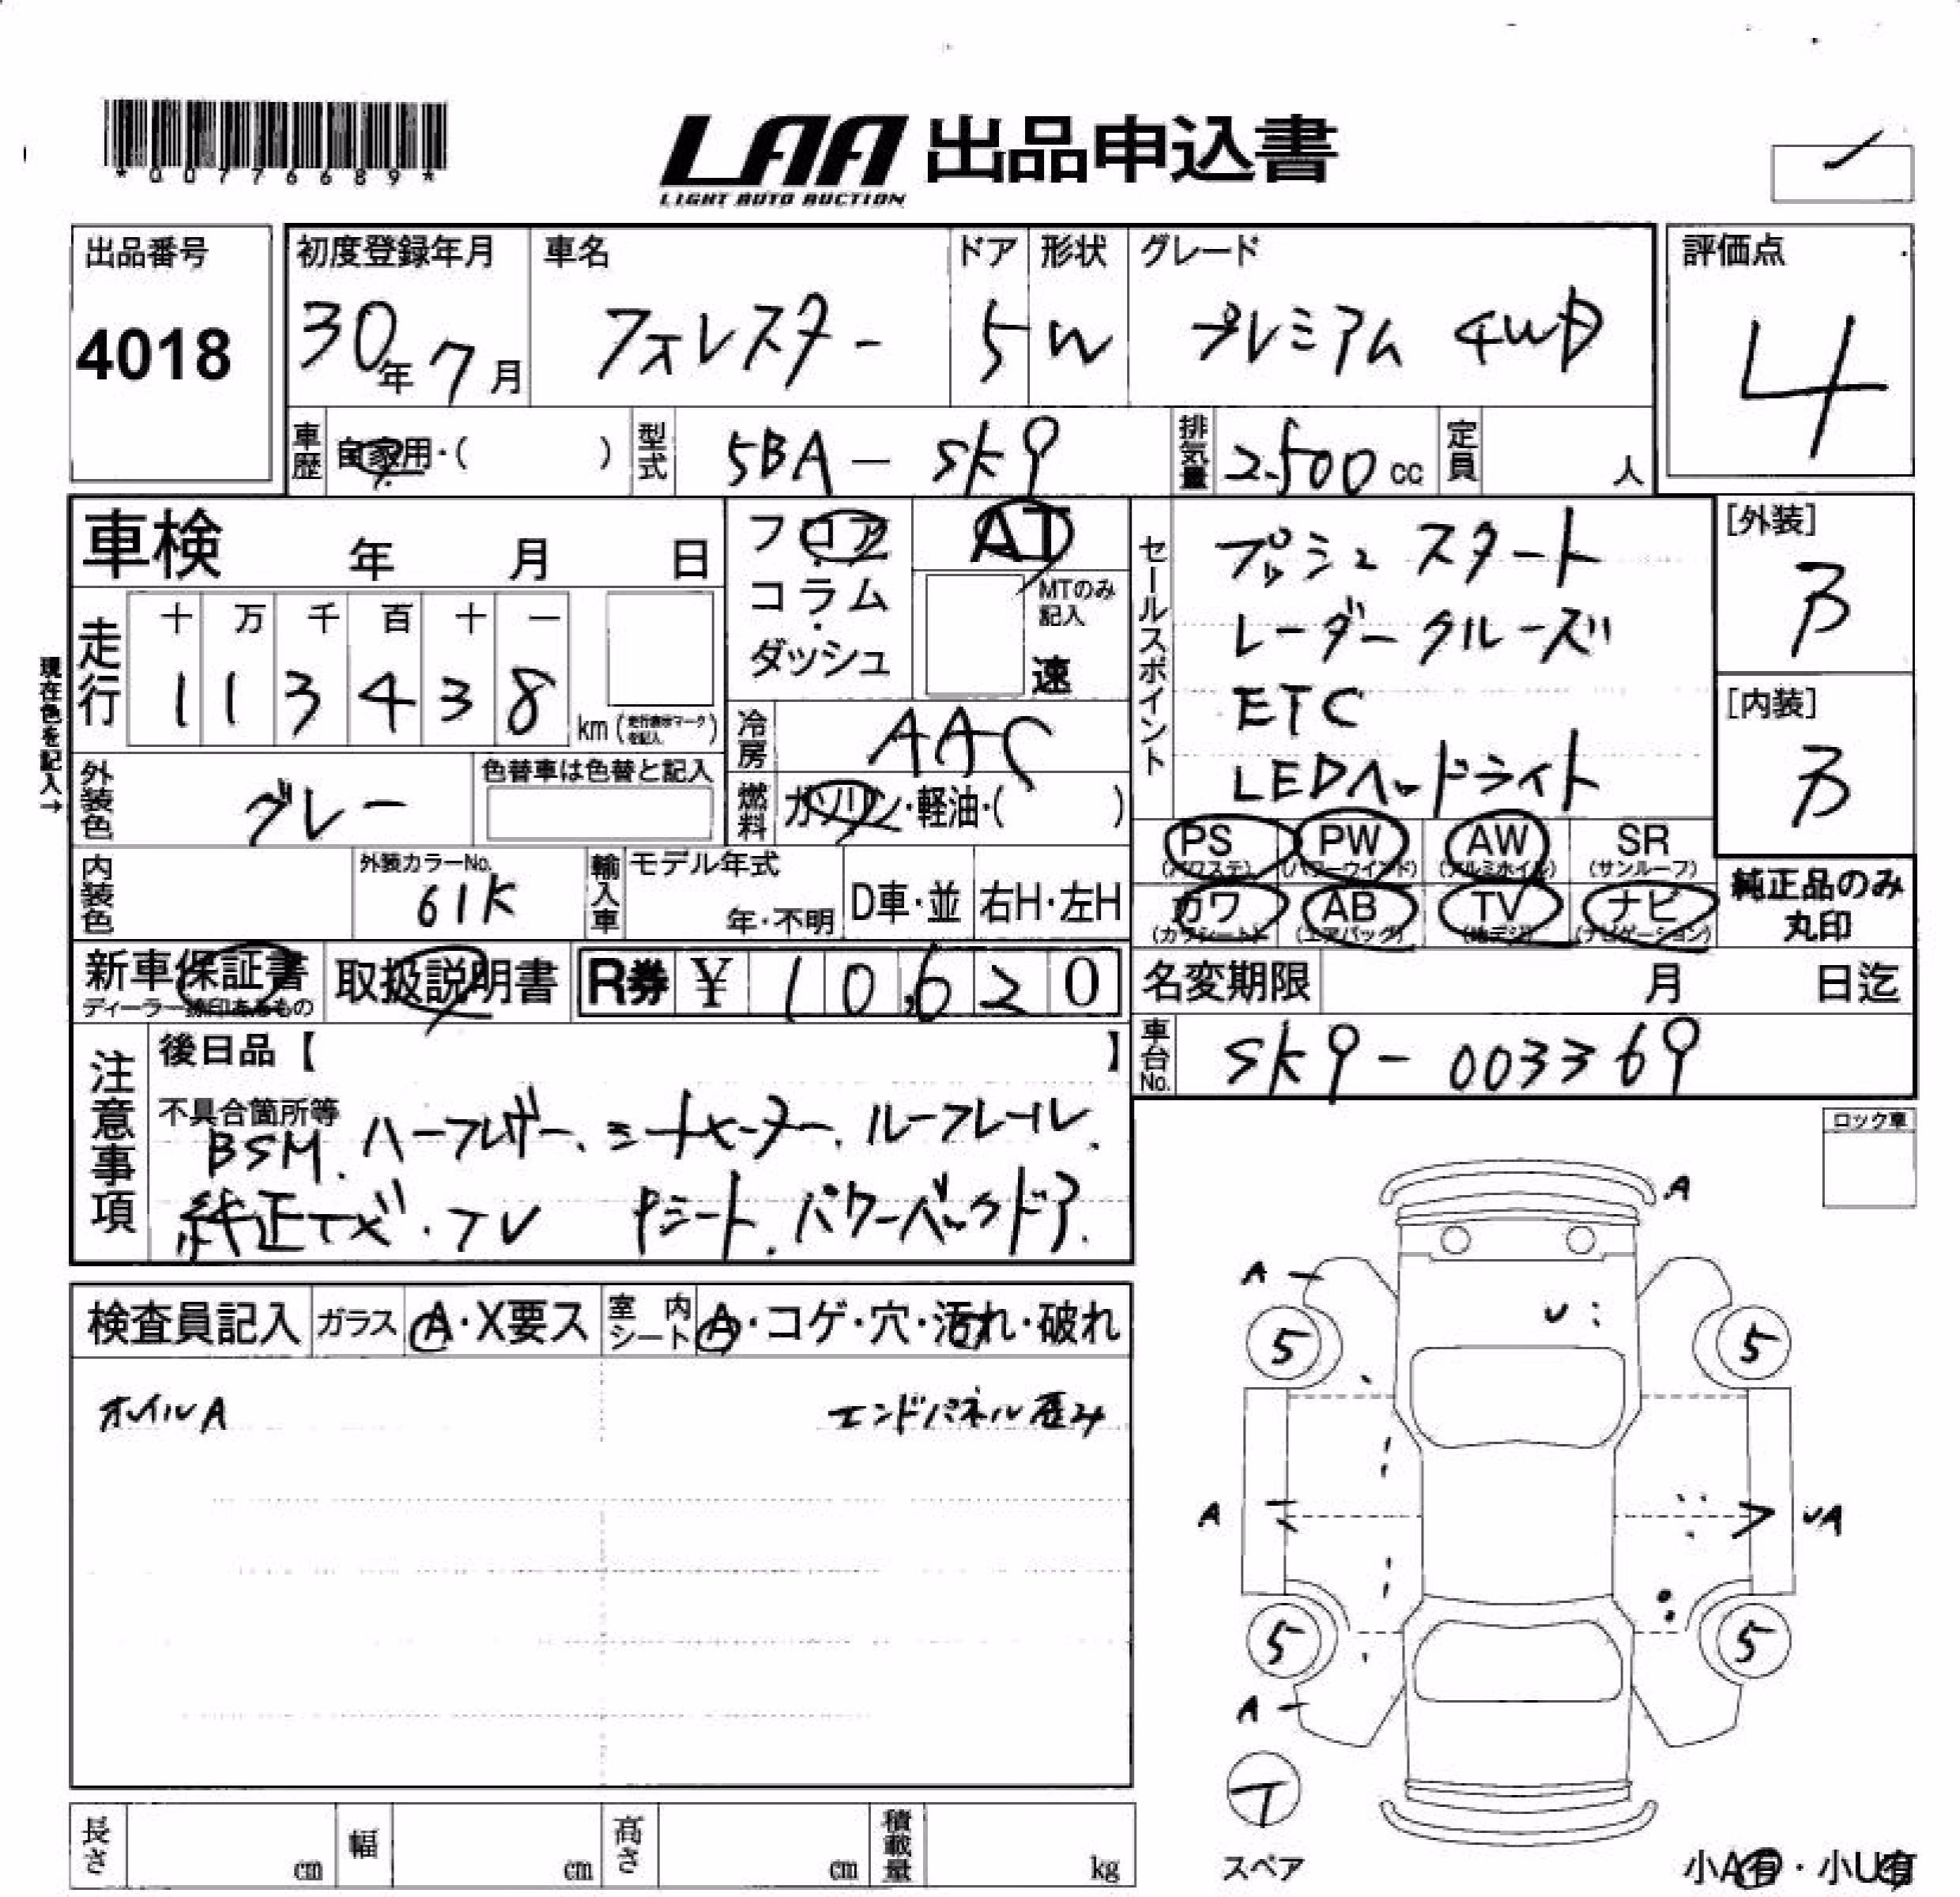 *00776689*
LAA 出品申込書
LIGHT AUTO AUCTION
出品番号
4018
初度登録年月
30年7月
車名
フォレスター
ドア
5
形状
W
グレード
プレミアム 4WD
評価点
4
車歴
自家用・( )
型式
5BA-SK9
排気量
2500 cc
定員
人
車検 年 月 日
フロア
コラム
ダッシュ
AT
MTのみ記入
速
セールスポイント
プッシュスタート
レーダークルーズ
ETC
LEDヘッドライト
[外装]
B
[内装]
B
現在色を記入→
走行
十 万 千 百 十 一
1 1 3 4 3 8
km (走行表示マークを記入)
冷房
AAC
燃料
ガソリン・軽油・( )
外装色
グレー
色替車は色替と記入
PS (パワステ)
PW (パワーウインド)
AW (アルミホイル)
SR (サンルーフ)
カワ (カワシート)
AB (エアバック)
TV (地デジ)
ナビ (ナビゲーション)
純正品のみ丸印
内装色
外装カラーNo.
61K
輸入車
モデル年式
年・不明
D車・並
右H・左H
新車保証書
ディーラー捺印あるもの
取扱説明書
R券 ¥ 10,620
名変期限 月 日迄
車台No.
SK9-003369
注意事項
後日品【 】
不具合箇所等
BSM、ハーフレザー、シートヒーター、ルーフレール、
純正ナビ・TV Pシート、パワーバックドア、
ロック車
検査員記入
ガラス
A・X要ス
室内シート
A・コゲ・穴・汚れ・破れ
オイルA
エンドパネル歪み
A
A
5
5
A
UA
5
5
A
T
スペア
長さ cm
幅 cm
高さ cm
積載量 kg
小A有・小U有